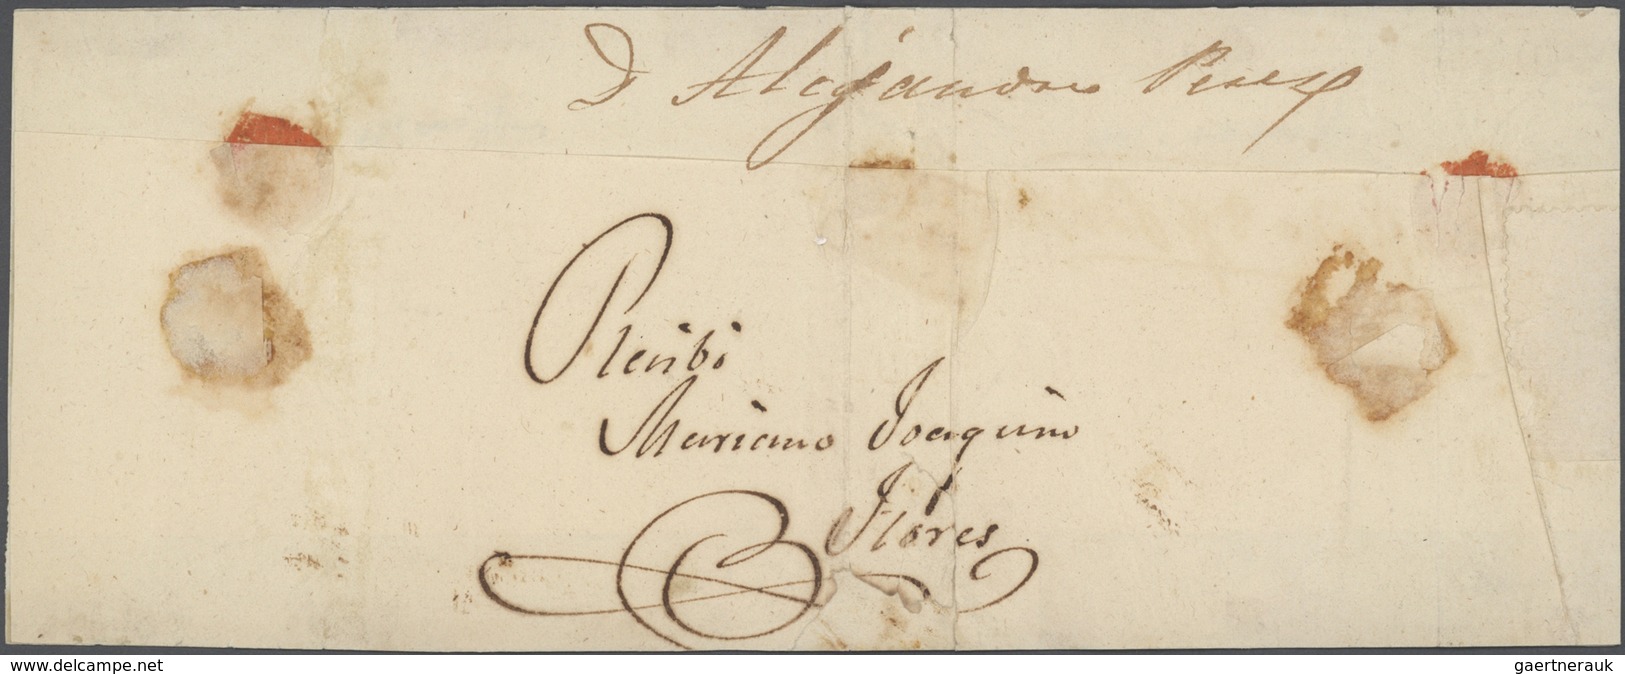 D Alejandro Perez
Recibi
Mariano Joaquin
Flores
www.delcampe.net
gaertnerauk